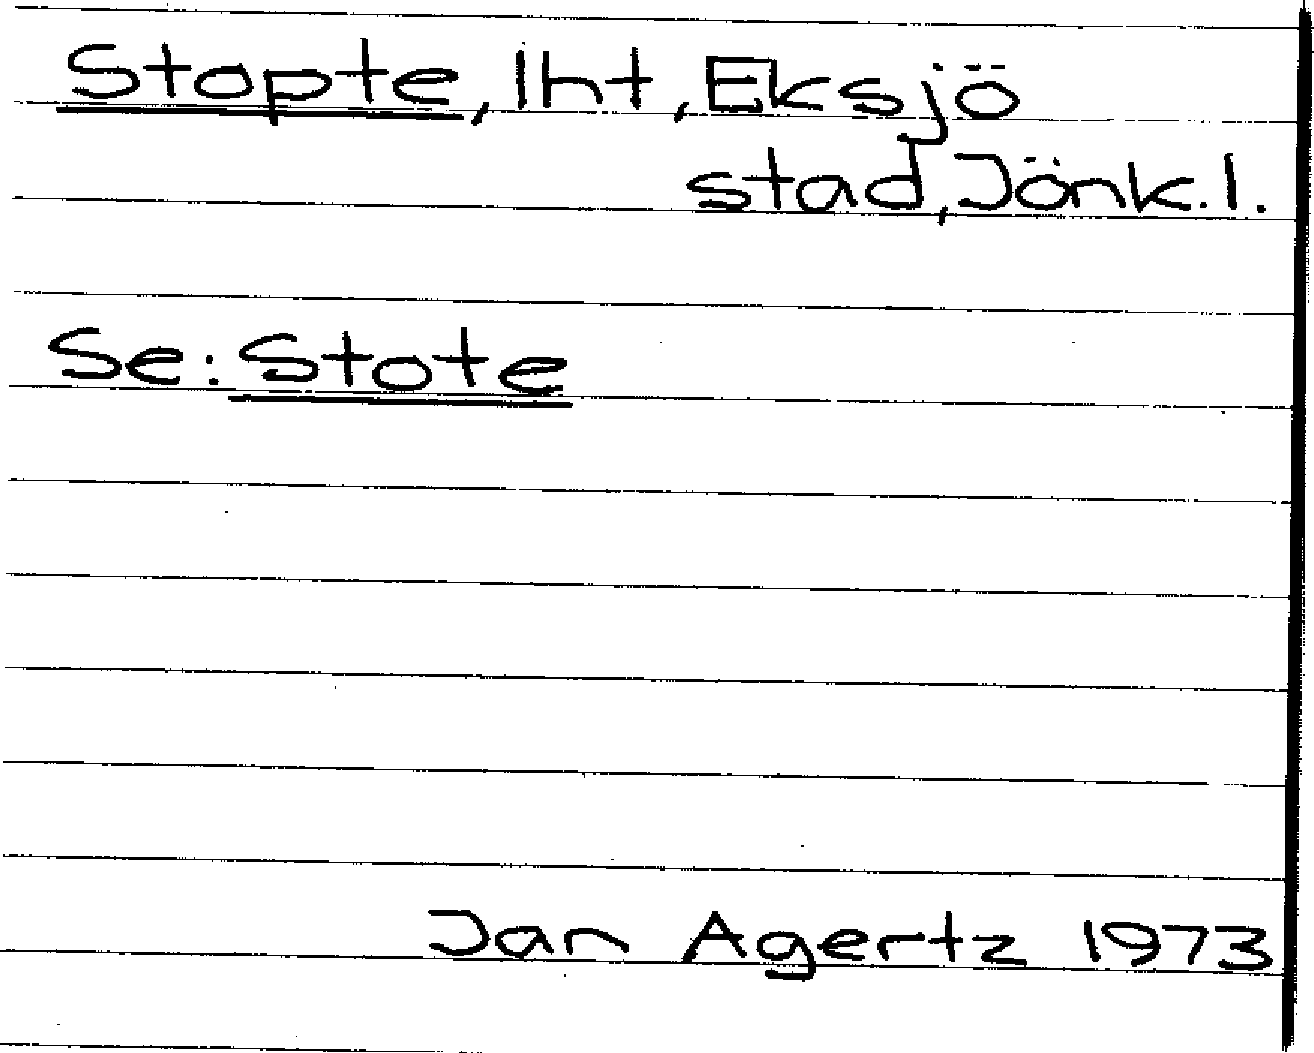 Stopte, lht, Eksjö
stad, Jönk.l.
Se: Stote
Jan Agertz 1973